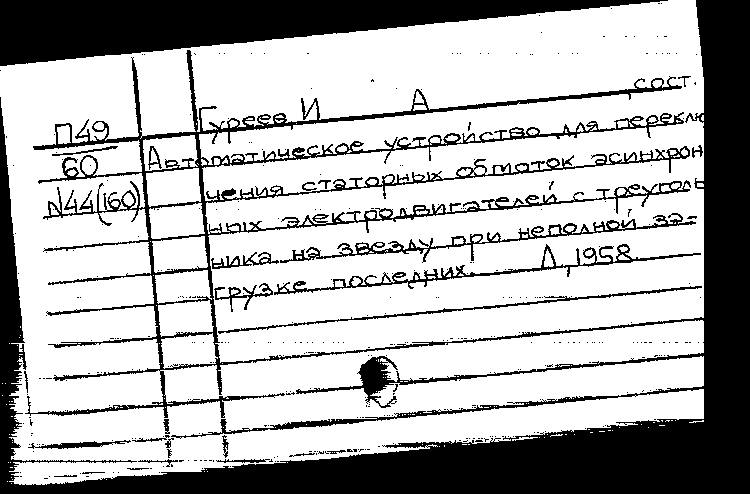 Гуреев, И А , сост.
П49
60
N44(160)
Автоматическое устройство для переклю
чения статорных обмоток асинхрон
ных электродвигателей с треуголь
ника на звезду при неполной за=
грузке последних. Л, 1958